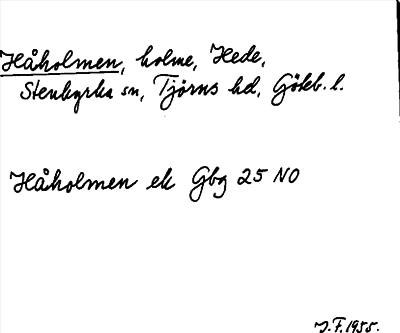 Håholmen, holme, Hede,
Stenkyrka sn, Tjörns hd, Göteb. l.
Håholmen ek Gbg 25 NO
J.F. 1955.